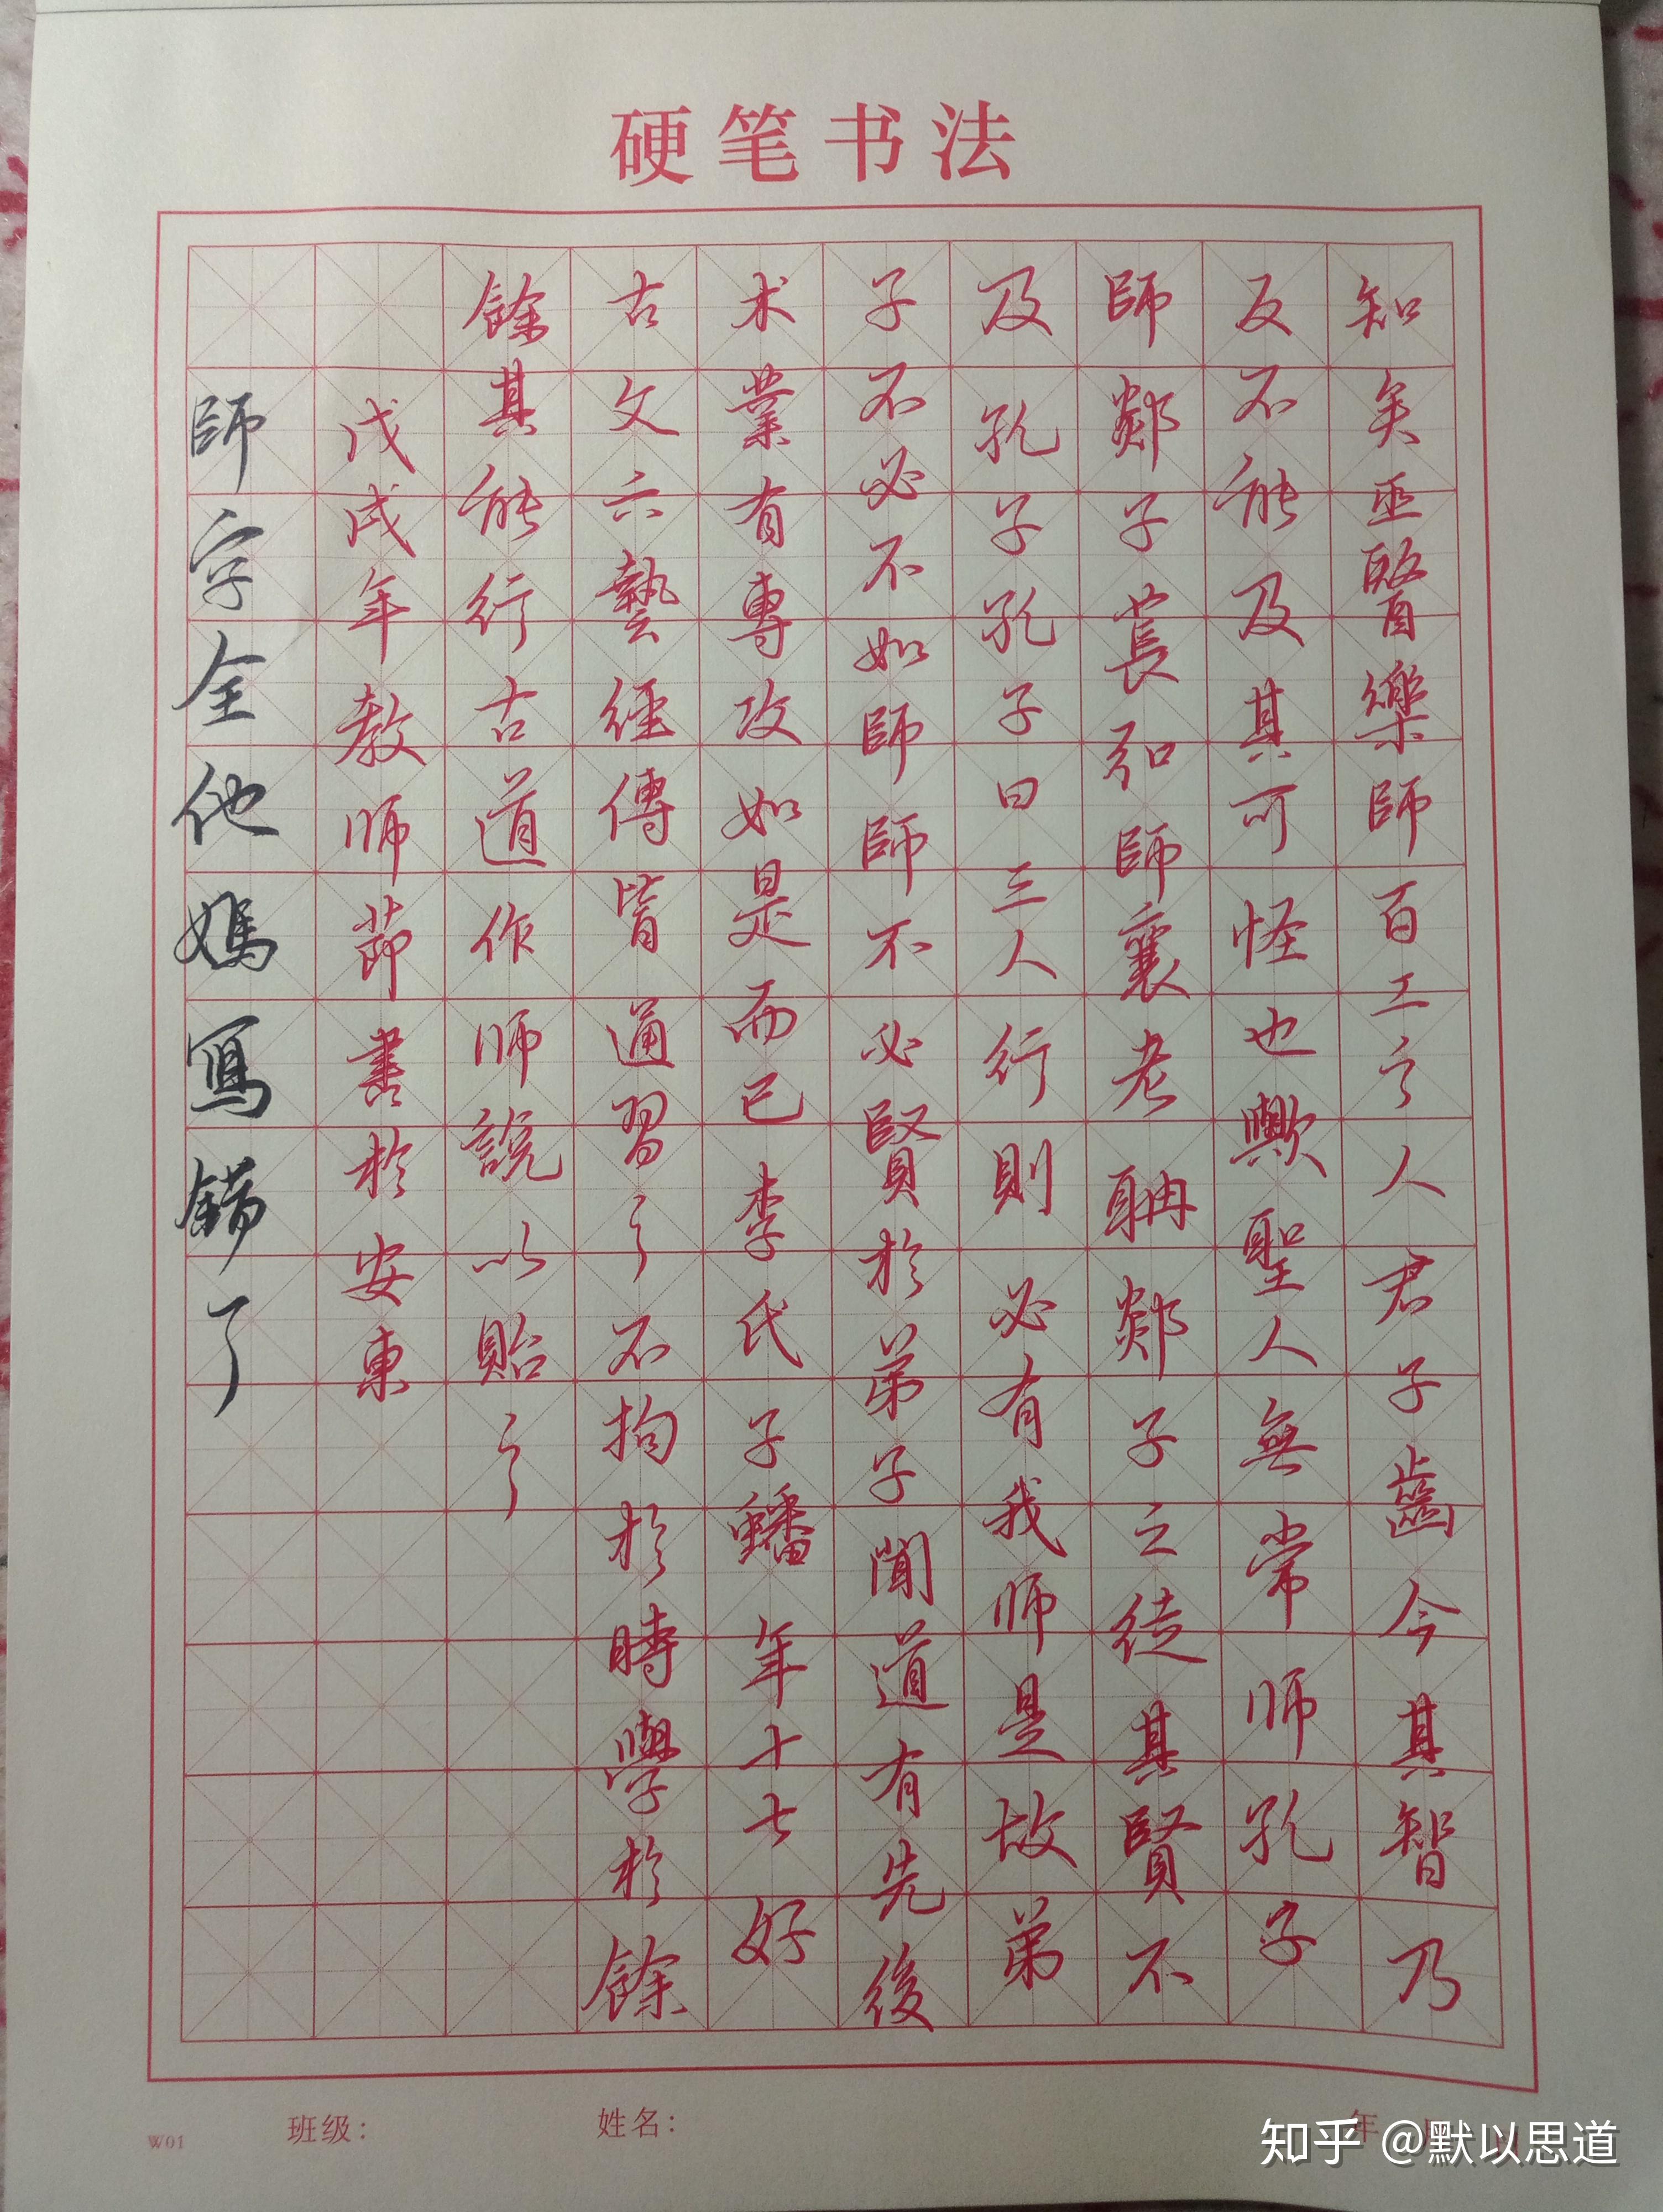 硬笔书法
知矣巫醫樂師百工之人君子齒今其智乃
反不能及其可怪也歟聖人無常师孔子
師郯子萇弘師襄老聃郯子之徒其賢不
及孔子孔子曰三人行則必有我师是故弟
子不必不如師師不必賢於弟子聞道有先後
术業有專攻如是而已李氏子蟠年十七好
古文六藝經傳皆通習之不拘於時學於餘
餘其能行古道作师說以貽之
戊戌年教师节書於安東
師字全他媽寫錯了
W01 班级： 姓名： 年
知乎 @默以思道